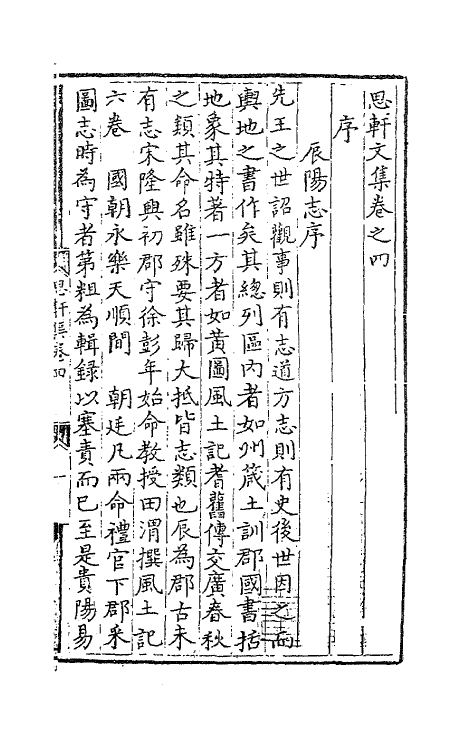 思軒文集卷之四
序
辰陽志序
先王之世詔觀事則有志道方志則有史後世因之而
輿地之書作矣其總列區內者如州箴土訓郡國書括
地象其特著一方者如黃圖風土記耆舊傳交廣春秋
之類其命名雖殊要其歸大抵皆志類也辰為郡古未
有志宋隆興初郡守徐彭年始命教授田渭撰風土記
六卷 國朝永樂天順間 朝廷乃兩命禮官下郡釆
圖志時為守者第粗為輯録以塞責而已至是貴陽易
思軒集卷四
一